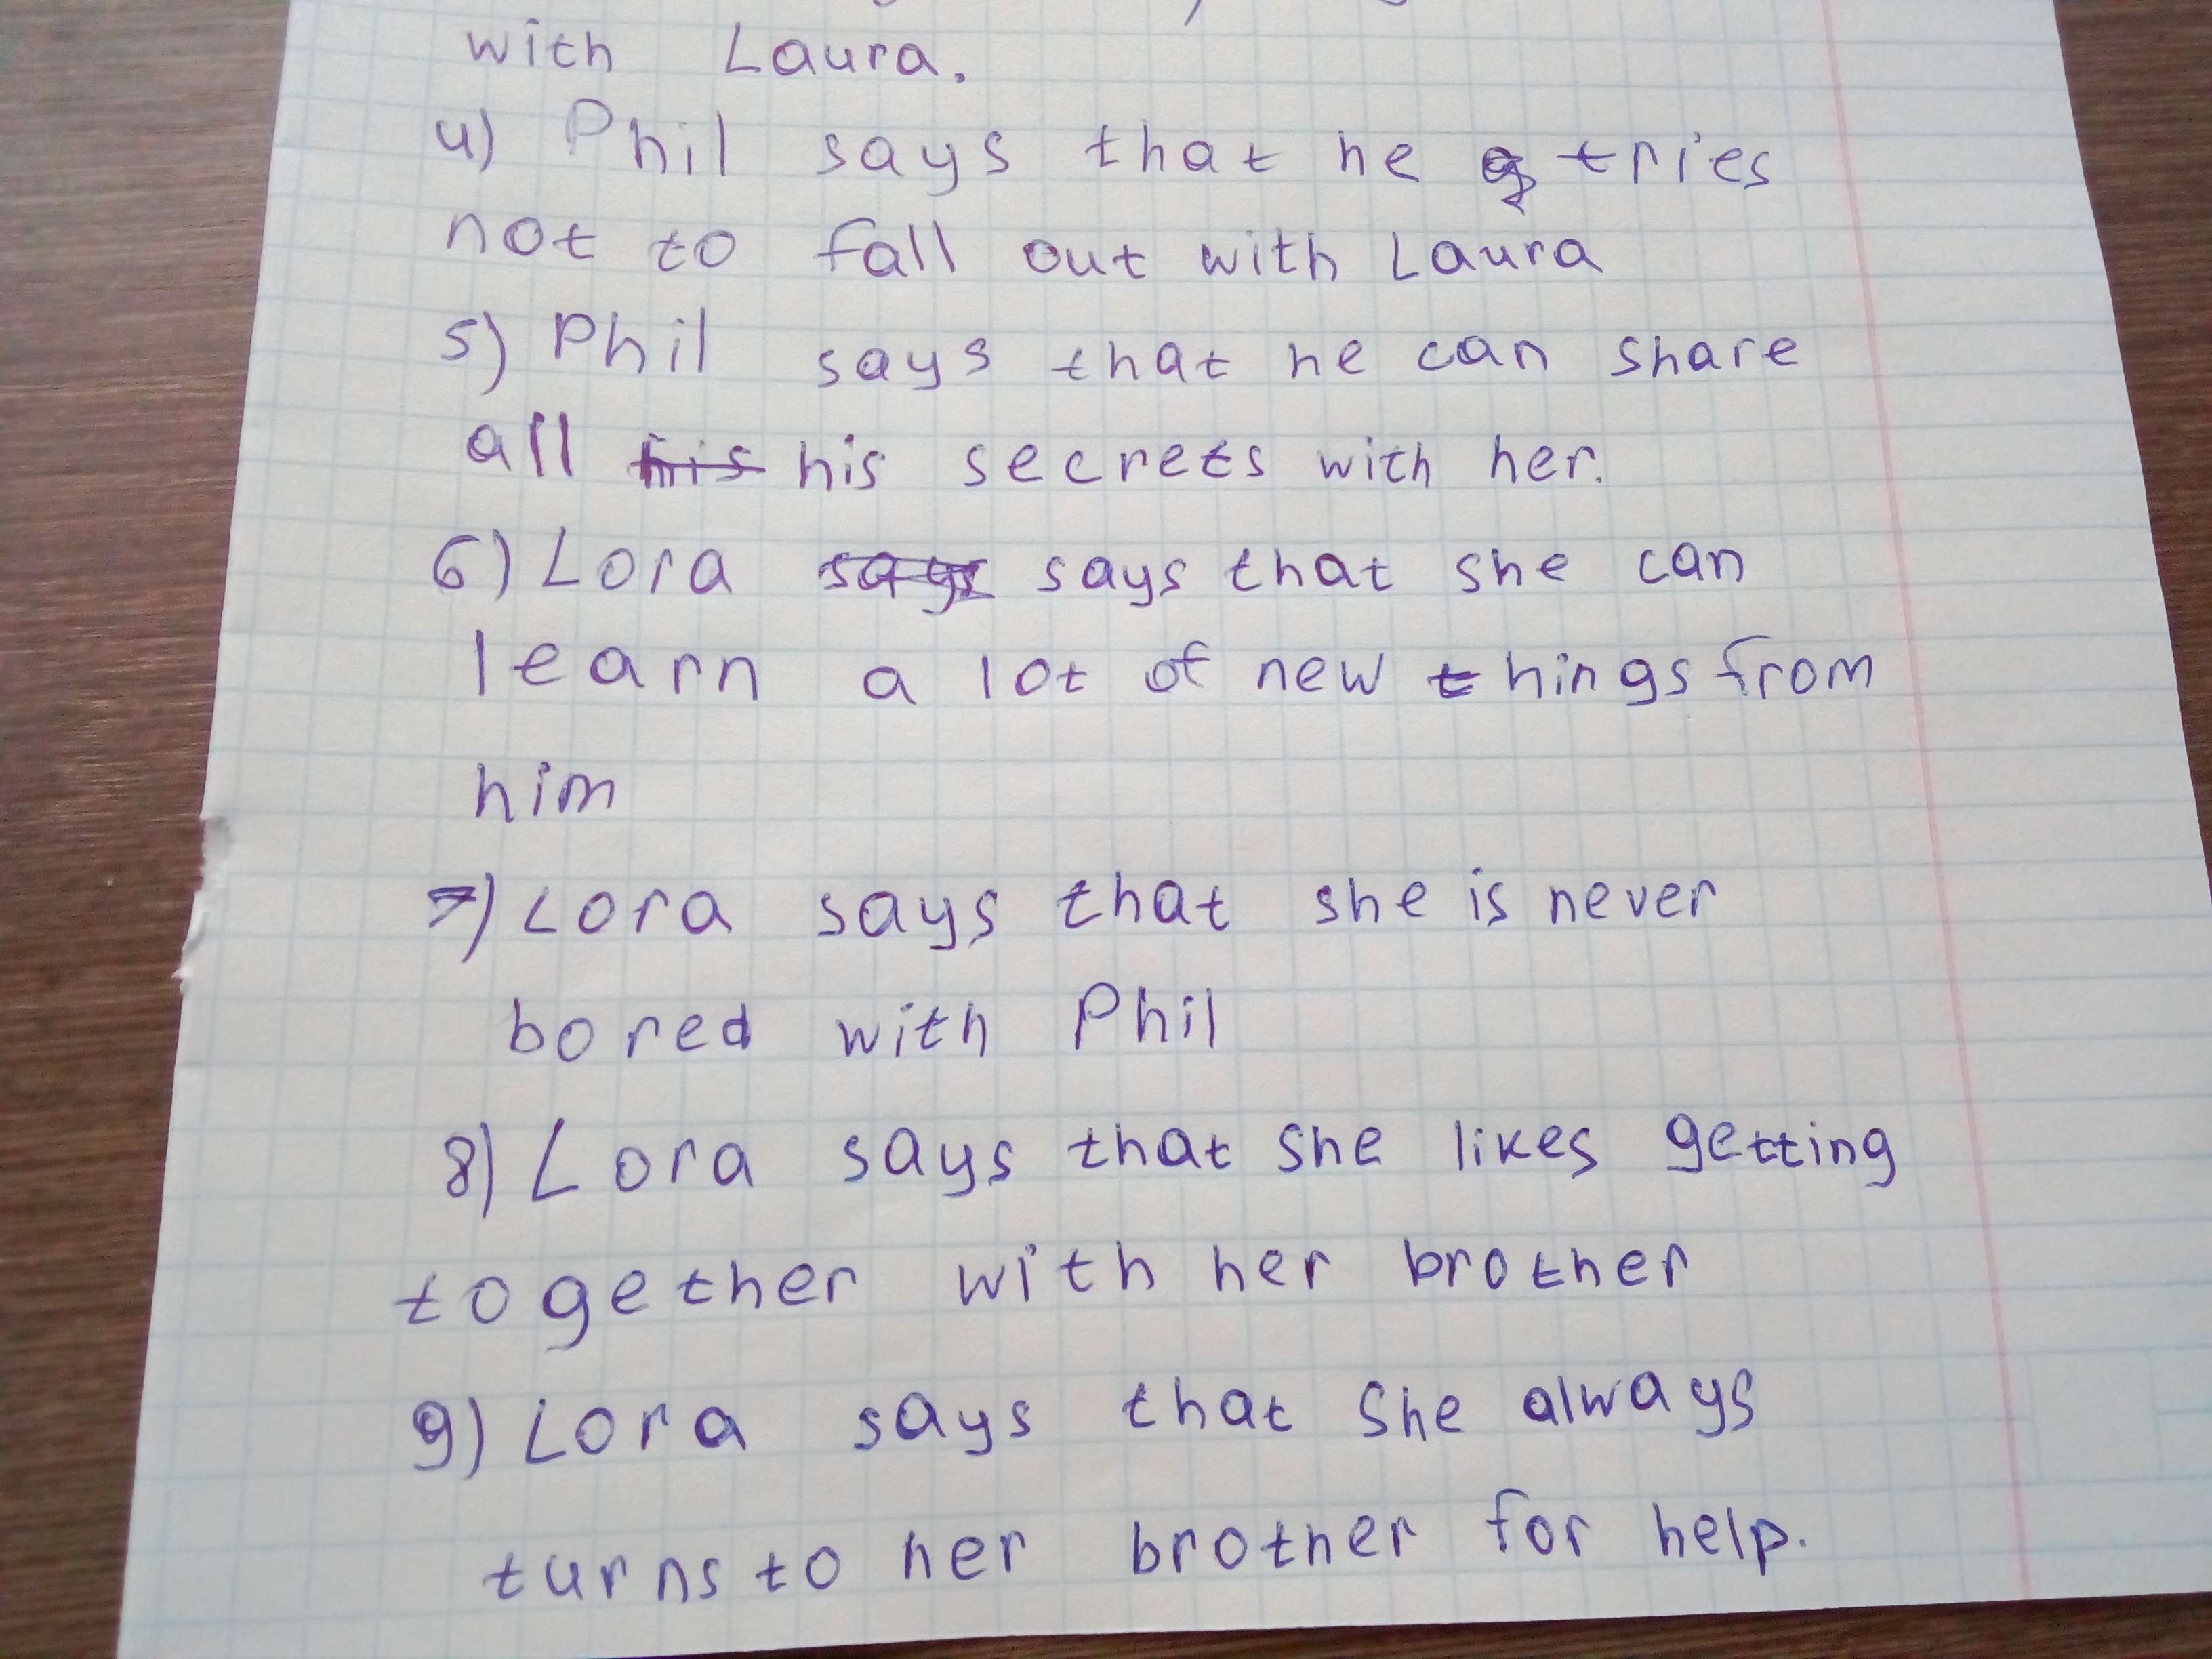 with Laura.
4) Phil says that he tries
not to fall out with Laura
5) Phil says that he can share
all his his secrets with her.
6) Lora says says that she can
learn a lot of new things from
him
7) Lora says that she is never
bored with Phil
8) Lora says that she likes getting
together with her brother
9) Lora says that she always
turns to her brother for help.